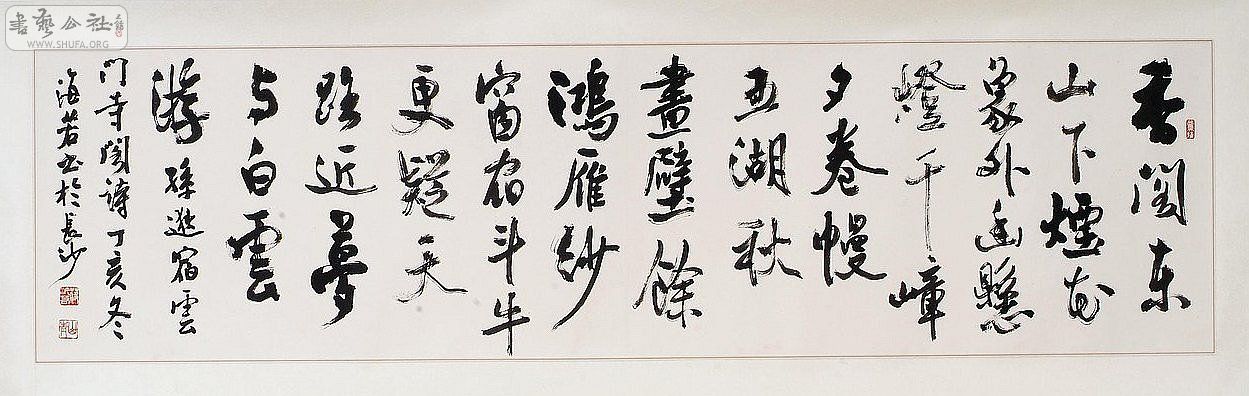 書藝公社
WWW.SHUFA.ORG
香閣东
山下煙花
象外幽懸
燈千嶂
夕卷幔
五湖秋
畫壁餘
鴻雁紗
窗宿斗牛
更疑天
路近夢
与白雲
游 孫逖宿雲
門寺閣詩丁亥冬
海若书於長沙